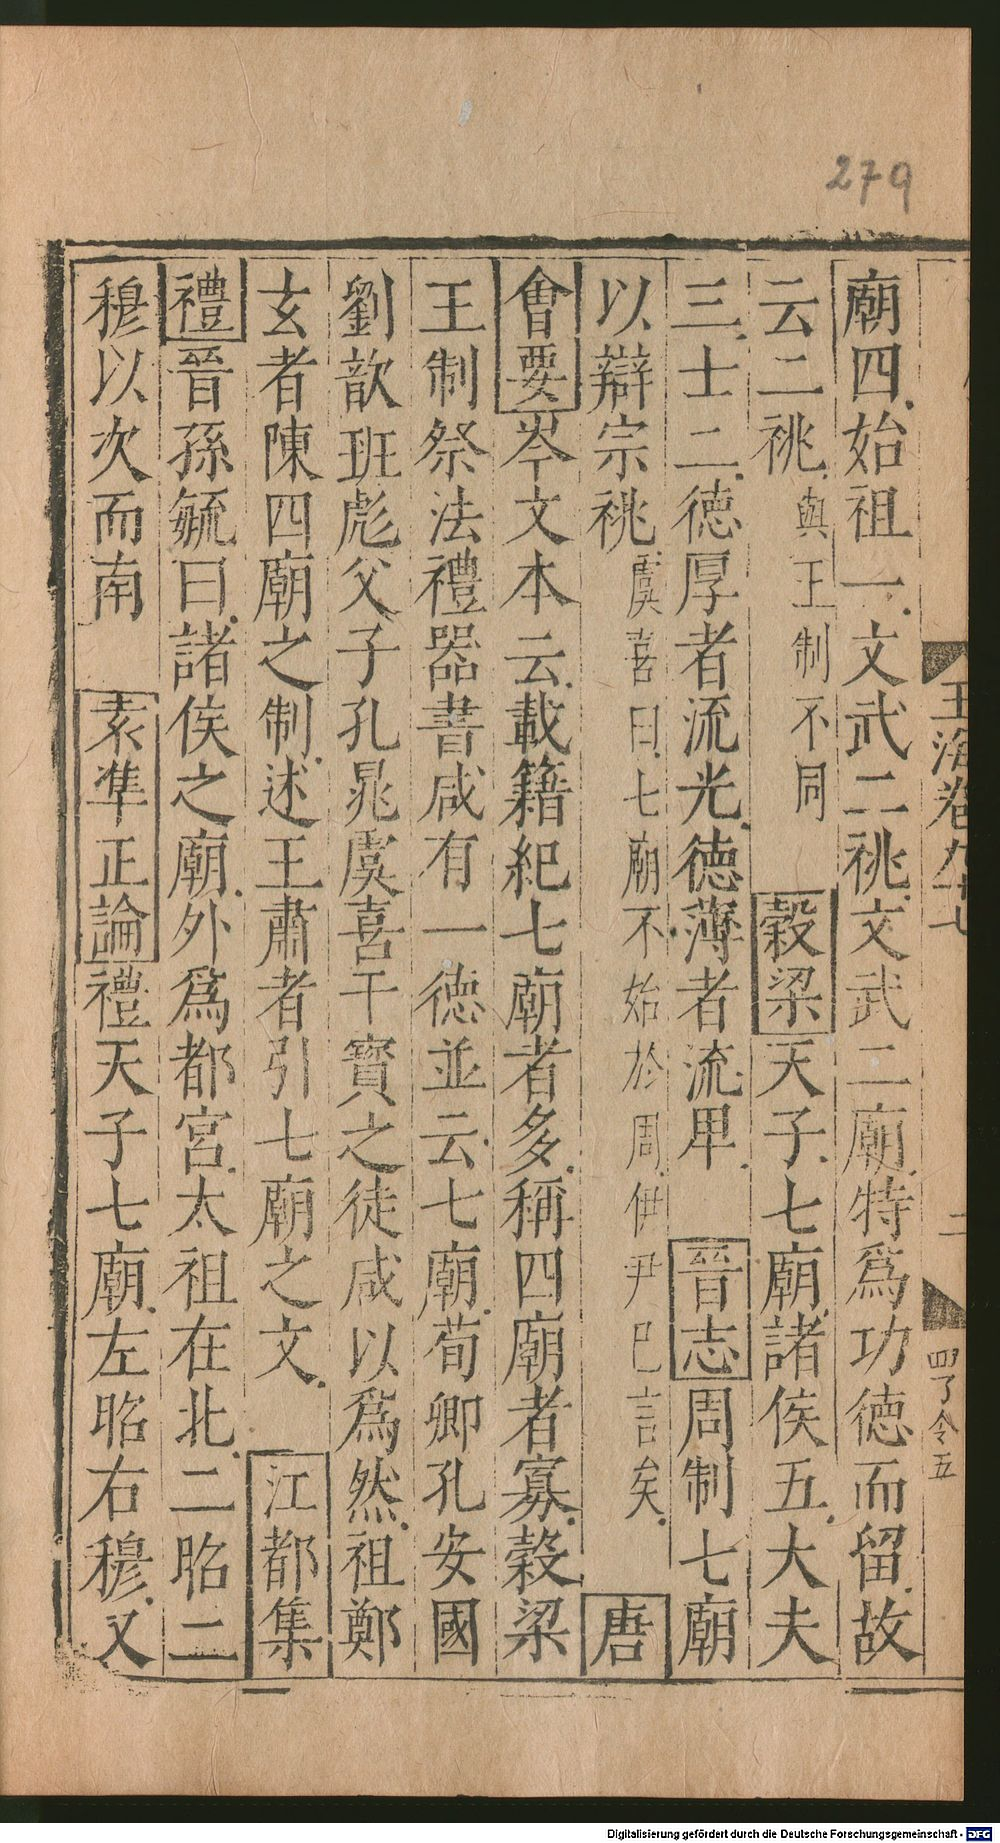 279
廟四始祖一文武二祧文武二廟特爲功德而留故
云二祧與王制不同 穀梁天子七廟諸侯五大夫
三士二德厚者流光德薄者流卑 晉志周制七廟
以辯宗祧虞喜曰七廟不始於周伊尹已言矣 唐
會要岑文本云載籍紀七廟者多稱四廟者寡穀梁
王制祭法禮器書咸有一德並云七廟荀卿孔安國
劉歆班彪父子孔晁虞喜干寶之徒咸以爲然祖鄭
玄者陳四廟之制述王肅者引七廟之文 江都集
禮晉孫毓曰諸侯之廟外爲都宮太祖在北二昭二
穆以次而南 袁準正論禮天子七廟左昭右穆又
玉海卷九十七
二
四了令五
Digitalisierung gefördert durch die Deutsche Forschungsgemeinschaft - DFG